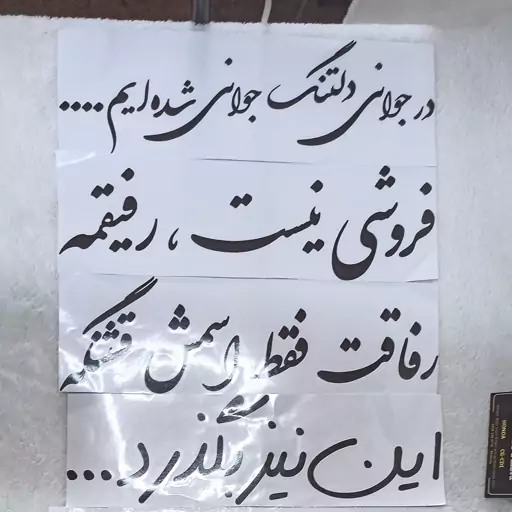 در جوانی دلتنگ جوانی شده ایم....
فروشی نیست، رفیقمه
رفاقت فقط اسمش قشنگه
این نیز بگذرد...
HONDA
CG-CDI